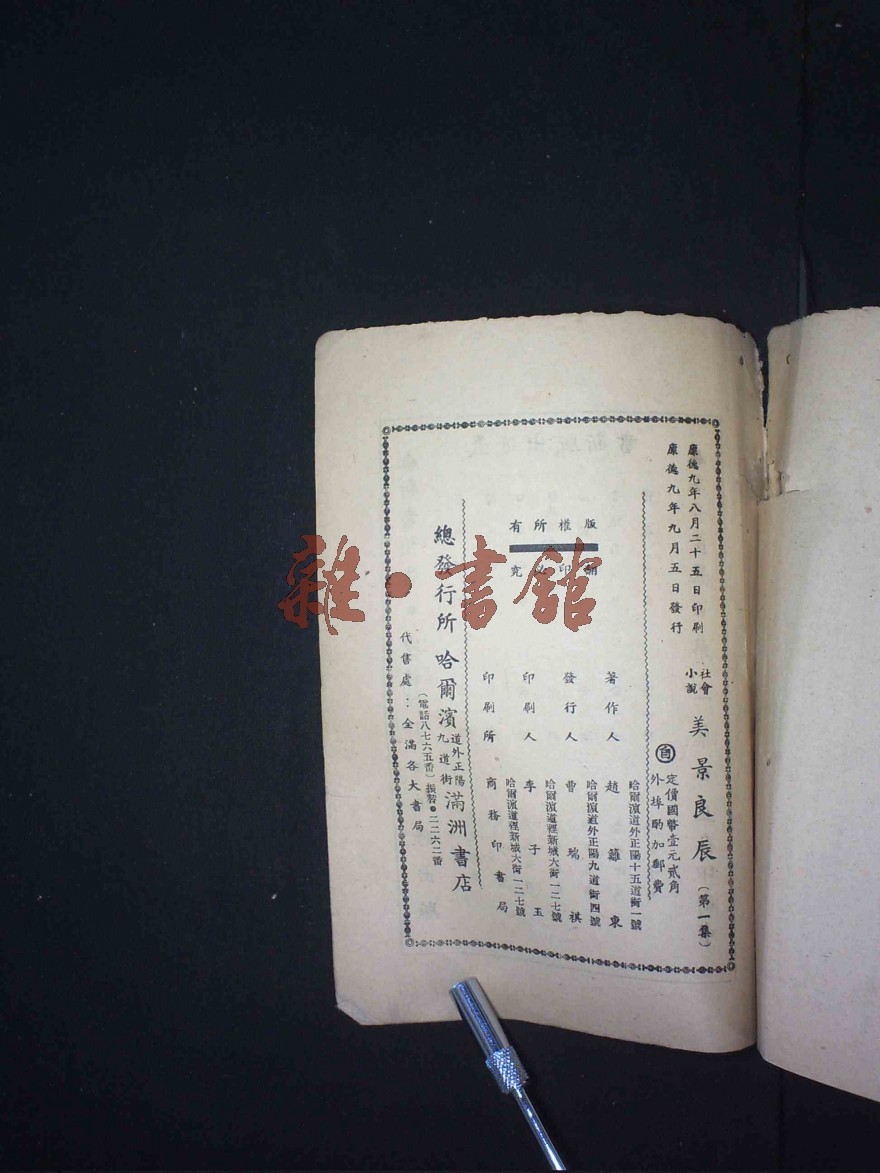 康德九年八月二十五日印刷
康德九年九月五日發行
社會小說 美景良辰（第一集）
自 定價國幣壹元貳角
外埠酌加郵費
版權所有
翻印必究
哈爾濱道外正陽十五道街一號
著作人 趙籬東
哈爾濱道外正陽九道街四號
發行人 曹瑞祺
哈爾濱道裡新城大街一二七號
印刷人 李子玉
哈爾濱道裡新城大街一二七號
印刷所 商務印書局
總發行所 哈爾濱道外正陽九道街 滿洲書店
（電話八七六五番）振替・二二六二番
代書處：全滿各大書局
雜・書館